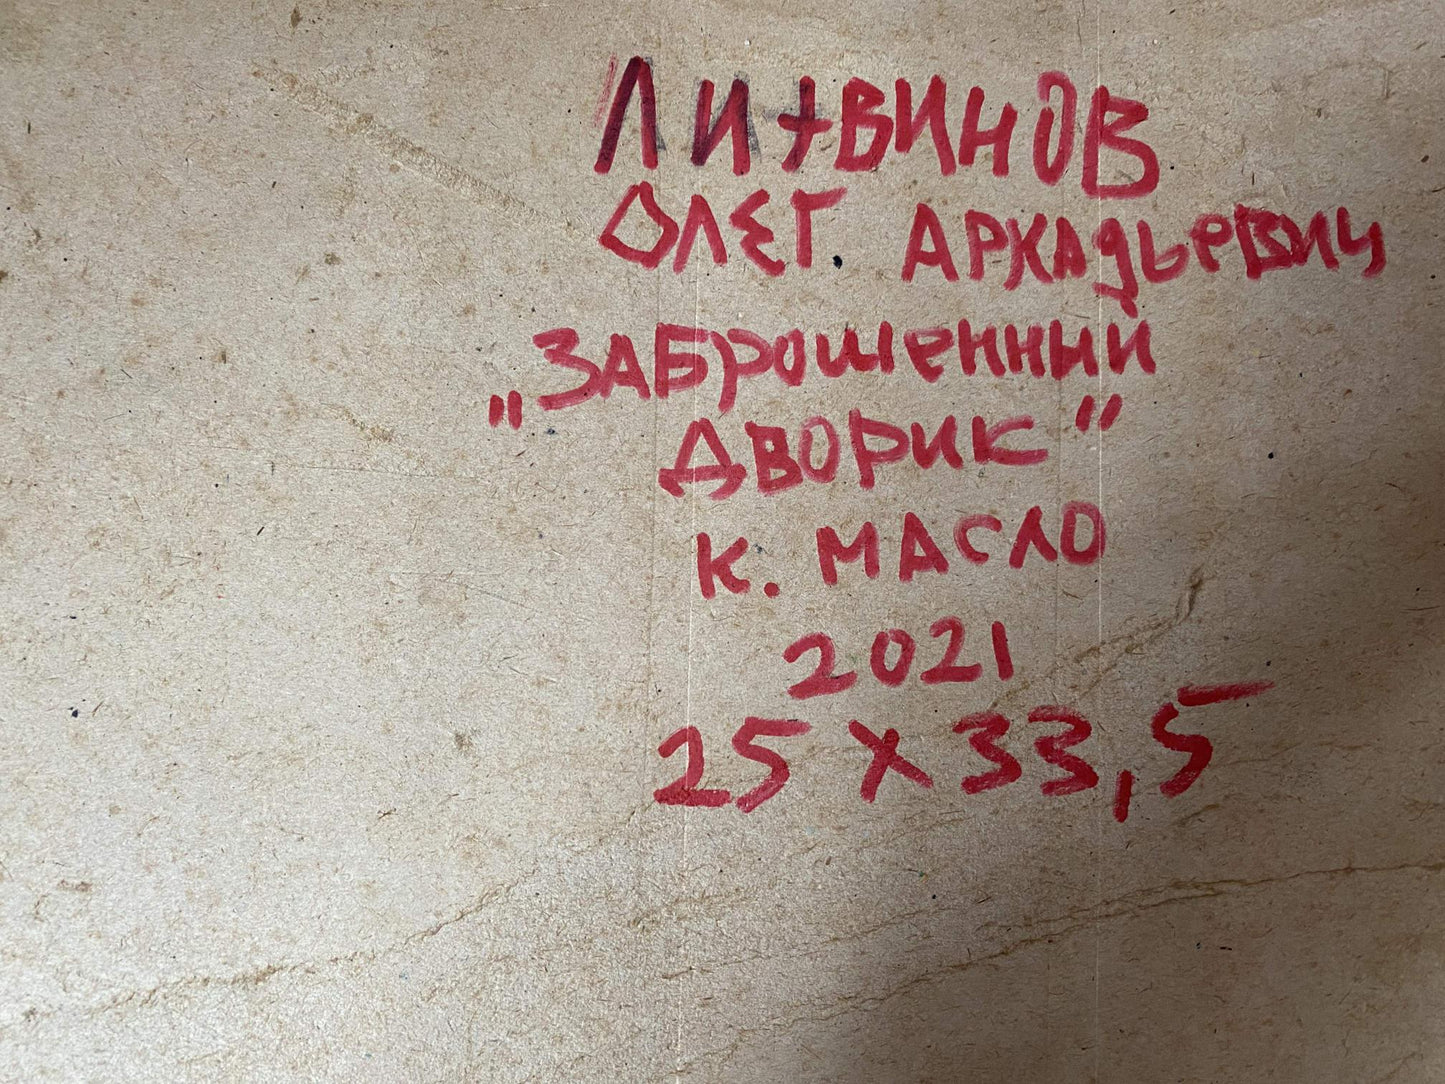 ЛИТВИНОВ
ОЛЕГ. АРКАДЬЕВИЧ
„ЗАБРОШЕННЫЙ
ДВОРИК"
К. МАСЛО
2021
25 х 33,5